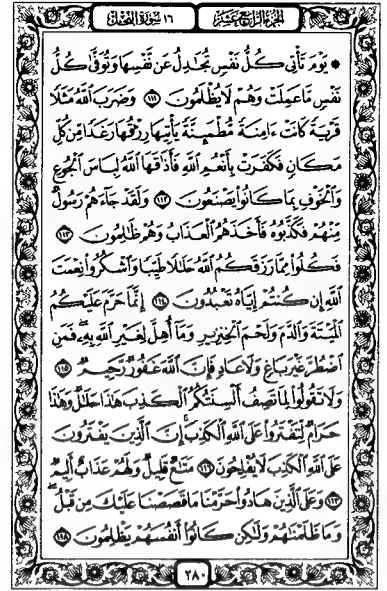 الجزء الرابع عشر
١٦ سورة النحل
۞ يَوۡمَ تَأۡتِي كُلُّ نَفۡسٖ تُجَٰدِلُ عَن نَّفۡسِهَا وَتُوَفَّىٰ كُلُّ
نَفۡسٖ مَّا عَمِلَتۡ وَهُمۡ لَا يُظۡلَمُونَ ١١١ وَضَرَبَ ٱللَّهُ مَثَلٗا
قَرۡيَةٗ كَانَتۡ ءَامِنَةٗ مُّطۡمَئِنَّةٗ يَأۡتِيهَا رِزۡقُهَا رَغَدٗا مِّن كُلِّ
مَكَانٖ فَكَفَرَتۡ بِأَنۡعُمِ ٱللَّهِ فَأَذَٰقَهَا ٱللَّهُ لِبَاسَ ٱلۡجُوعِ
وَٱلۡخَوۡفِ بِمَا كَانُواْ يَصۡنَعُونَ ١١٢ وَلَقَدۡ جَآءَهُمۡ رَسُولٞ
مِّنۡهُمۡ فَكَذَّبُوهُ فَأَخَذَهُمُ ٱلۡعَذَابُ وَهُمۡ ظَٰلِمُونَ ١١٣
فَكُلُواْ مِمَّا رَزَقَكُمُ ٱللَّهُ حَلَٰلٗا طَيِّبٗا وَٱشۡكُرُواْ نِعۡمَتَ
ٱللَّهِ إِن كُنتُمۡ إِيَّاهُ تَعۡبُدُونَ ١١٤ إِنَّمَا حَرَّمَ عَلَيۡكُمُ
ٱلۡمَيۡتَةَ وَٱلدَّمَ وَلَحۡمَ ٱلۡخِنزِيرِ وَمَآ أُهِلَّ لِغَيۡرِ ٱللَّهِ بِهِۦۖ فَمَنِ
ٱضۡطُرَّ غَيۡرَ بَاغٖ وَلَا عَادٖ فَإِنَّ ٱللَّهَ غَفُورٞ رَّحِيمٞ ١١٥
وَلَا تَقُولُواْ لِمَا تَصِفُ أَلۡسِنَتُكُمُ ٱلۡكَذِبَ هَٰذَا حَلَٰلٞ وَهَٰذَا
حَرَامٞ لِّتَفۡتَرُواْ عَلَى ٱللَّهِ ٱلۡكَذِبَۚ إِنَّ ٱلَّذِينَ يَفۡتَرُونَ
عَلَى ٱللَّهِ ٱلۡكَذِبَ لَا يُفۡلِحُونَ ١١٦ مَتَٰعٞ قَلِيلٞ وَلَهُمۡ عَذَابٌ أَلِيمٞ
١١٧ وَعَلَى ٱلَّذِينَ هَادُواْ حَرَّمۡنَا مَا قَصَصۡنَا عَلَيۡكَ مِن قَبۡلُۖ
وَمَا ظَلَمۡنَٰهُمۡ وَلَٰكِن كَانُوٓاْ أَنفُسَهُمۡ يَظۡلِمُونَ ١١٨
٢٨٠